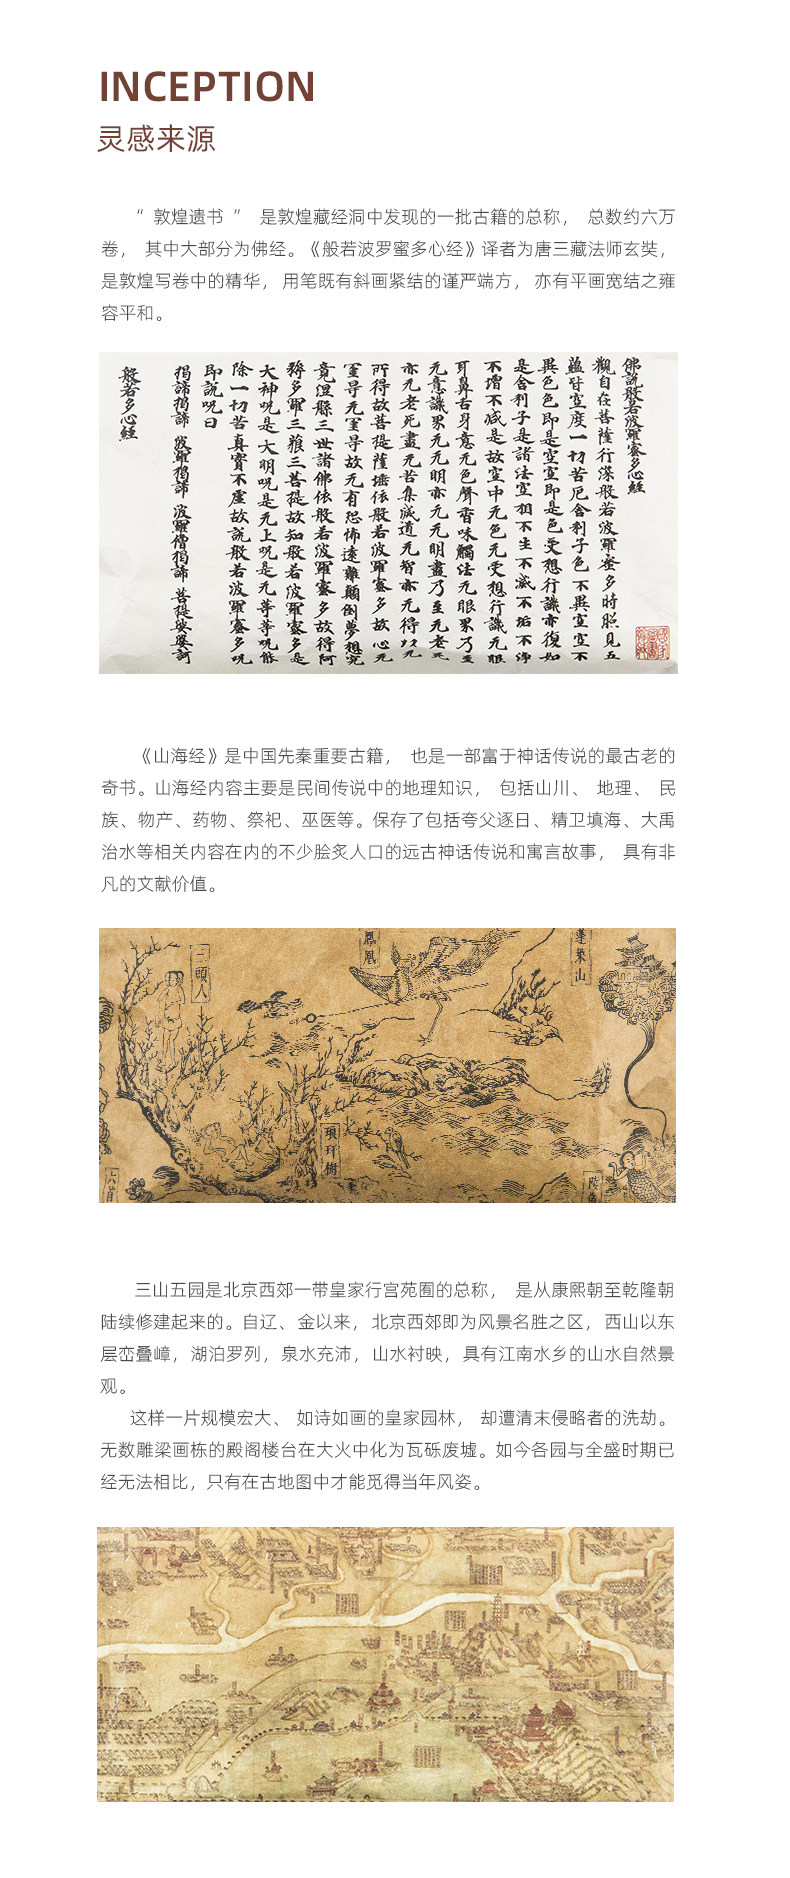 INCEPTION
灵感来源
“ 敦煌遗书 ” 是敦煌藏经洞中发现的一批古籍的总称， 总数约六万
卷， 其中大部分为佛经。《般若波罗蜜多心经》译者为唐三藏法师玄奘，
是敦煌写卷中的精华， 用笔既有斜画紧结的谨严端方， 亦有平画宽结之雍
容平和。
佛說般若波羅蜜多心經
觀自在菩薩行深般若波羅蜜多時照見五
蘊皆空度一切苦厄舍利子色不異空空不
異色色即是空空即是色受想行識亦復如
是舍利子是諸法空相不生不滅不垢不淨
不增不減是故空中无色无受想行識无眼
耳鼻舌身意无色聲香味觸法无眼界乃至
无意識界无无明亦无无明盡乃至无老死
亦无老死盡无苦集滅道无智亦无得以无
所得故菩提薩埵依般若波羅蜜多故心无
罣导无罣导故无有恐怖遠離顛倒夢想究
竟涅槃三世諸佛依般若波羅蜜多故得阿
耨多羅三藐三菩提故知般若波羅蜜多是
大神咒是大明咒是无上咒是无等等咒能
除一切苦真實不虛故說般若波羅蜜多咒
即說咒曰
揭諦揭諦 波羅揭諦 波羅僧揭諦 菩提娑婆訶
般若多心經
《山海经》是中国先秦重要古籍， 也是一部富于神话传说的最古老的
奇书。山海经内容主要是民间传说中的地理知识， 包括山川、 地理、 民
族、物产、药物、祭祀、巫医等。保存了包括夸父逐日、精卫填海、大禹
治水等相关内容在内的不少脍炙人口的远古神话传说和寓言故事， 具有非
凡的文献价值。
蓬萊山
鳳凰
二頭人
琅玕樹
六首
三山五园是北京西郊一带皇家行宫苑囿的总称， 是从康熙朝至乾隆朝
陆续修建起来的。自辽、金以来，北京西郊即为风景名胜之区，西山以东
层峦叠嶂，湖泊罗列，泉水充沛，山水衬映，具有江南水乡的山水自然景
观。
这样一片规模宏大、 如诗如画的皇家园林， 却遭清末侵略者的洗劫。
无数雕梁画栋的殿阁楼台在大火中化为瓦砾废墟。如今各园与全盛时期已
经无法相比，只有在古地图中才能觅得当年风姿。